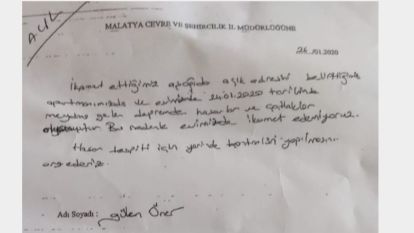 ACİL
MALATYA ÇEVRE VE ŞEHİRCİLİK İL MÜDÜRLÜĞÜNE
26/01.2020
İkamet ettiğimiz aşağıda açık adresini belirttiğimiz
apartmanımızda ve evimizde 24.01.2020 tarihinde
meydana gelen depremde hasarlar ve çatlaklar
Bu nedenle evimizde ikamet edemiyoruz.
Hasar tespiti için yerinde kontrolün yapılmasını
arz ederiz.
Adı Soyadı : Gülen Öner